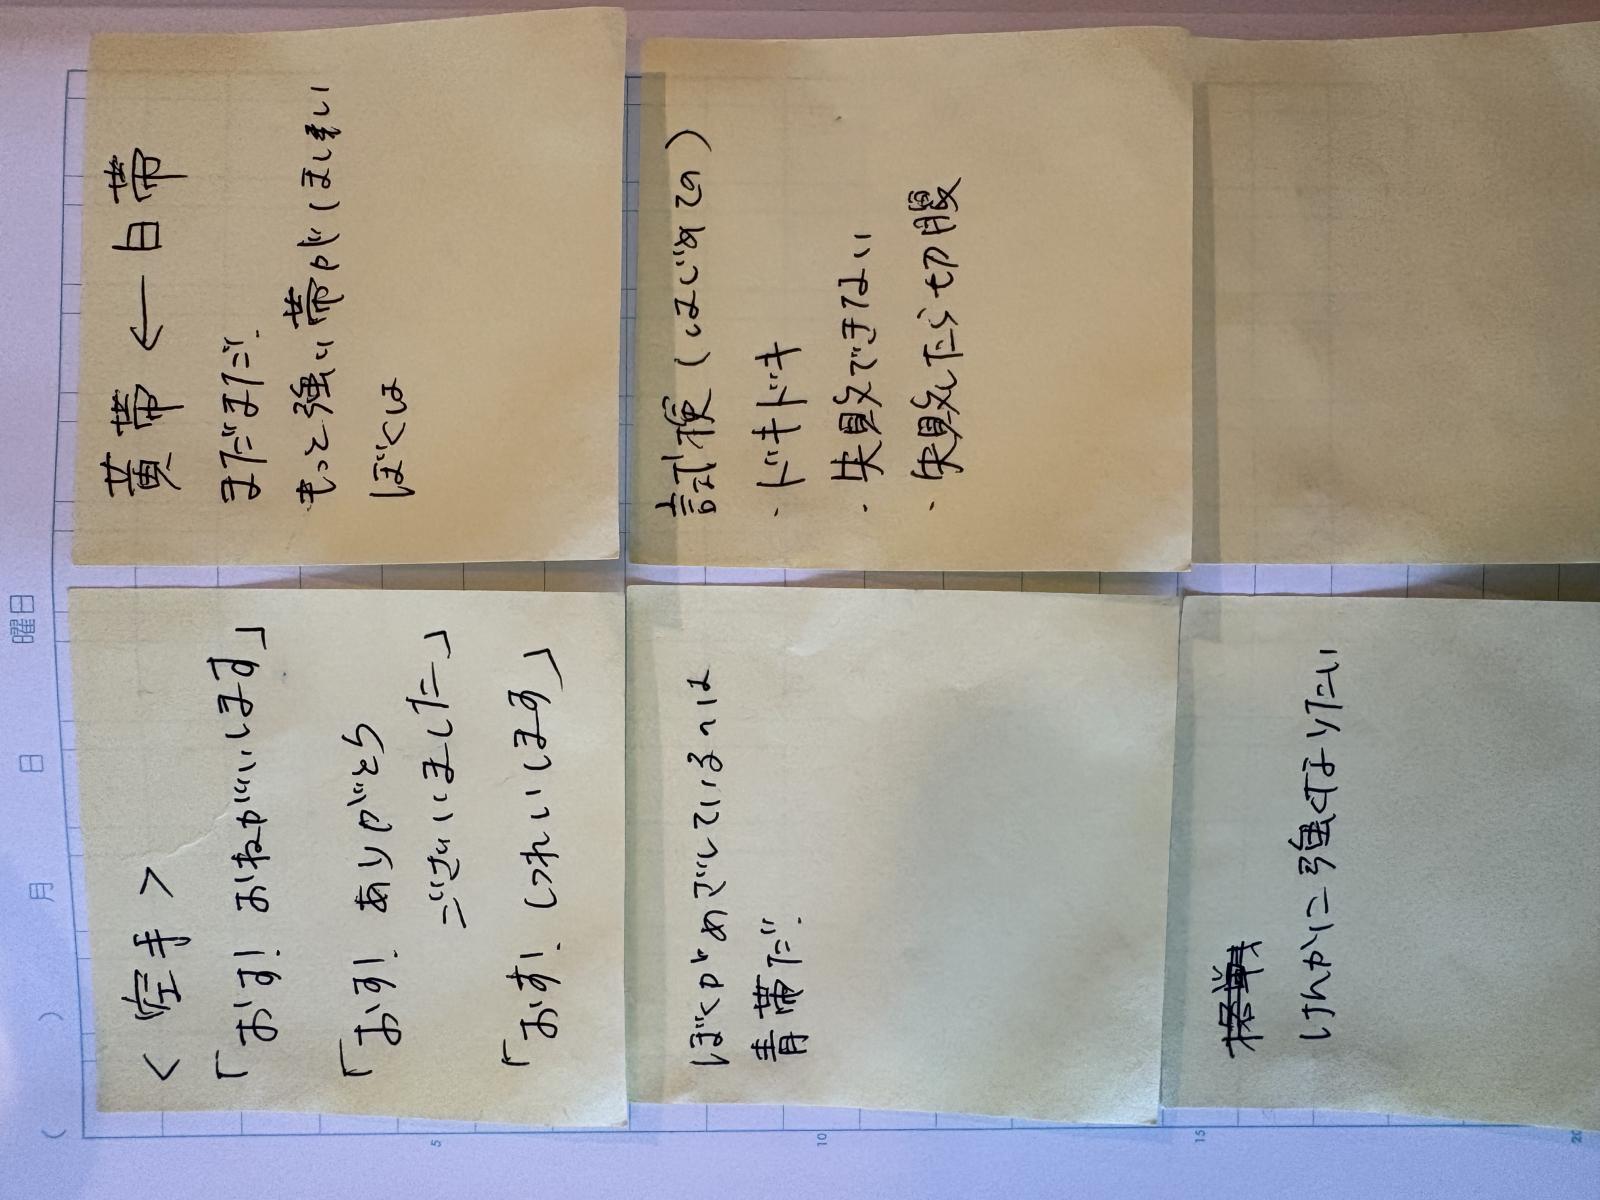 ( ) 月 日 曜日
<空手>
「おす! おねがいします」
「おす! ありがとう
ございました」
「おす! しつれいします」
黄帯 ← 白帯
まだまだ.
もっと強い帯がほしい
ぼくは
5
ぼくがめざしているのは
青帯だ.
試験(はじめての)
・ドキドキ
・失敗できない
・失敗したら切腹
10
けんかに強くなりたい
15
20